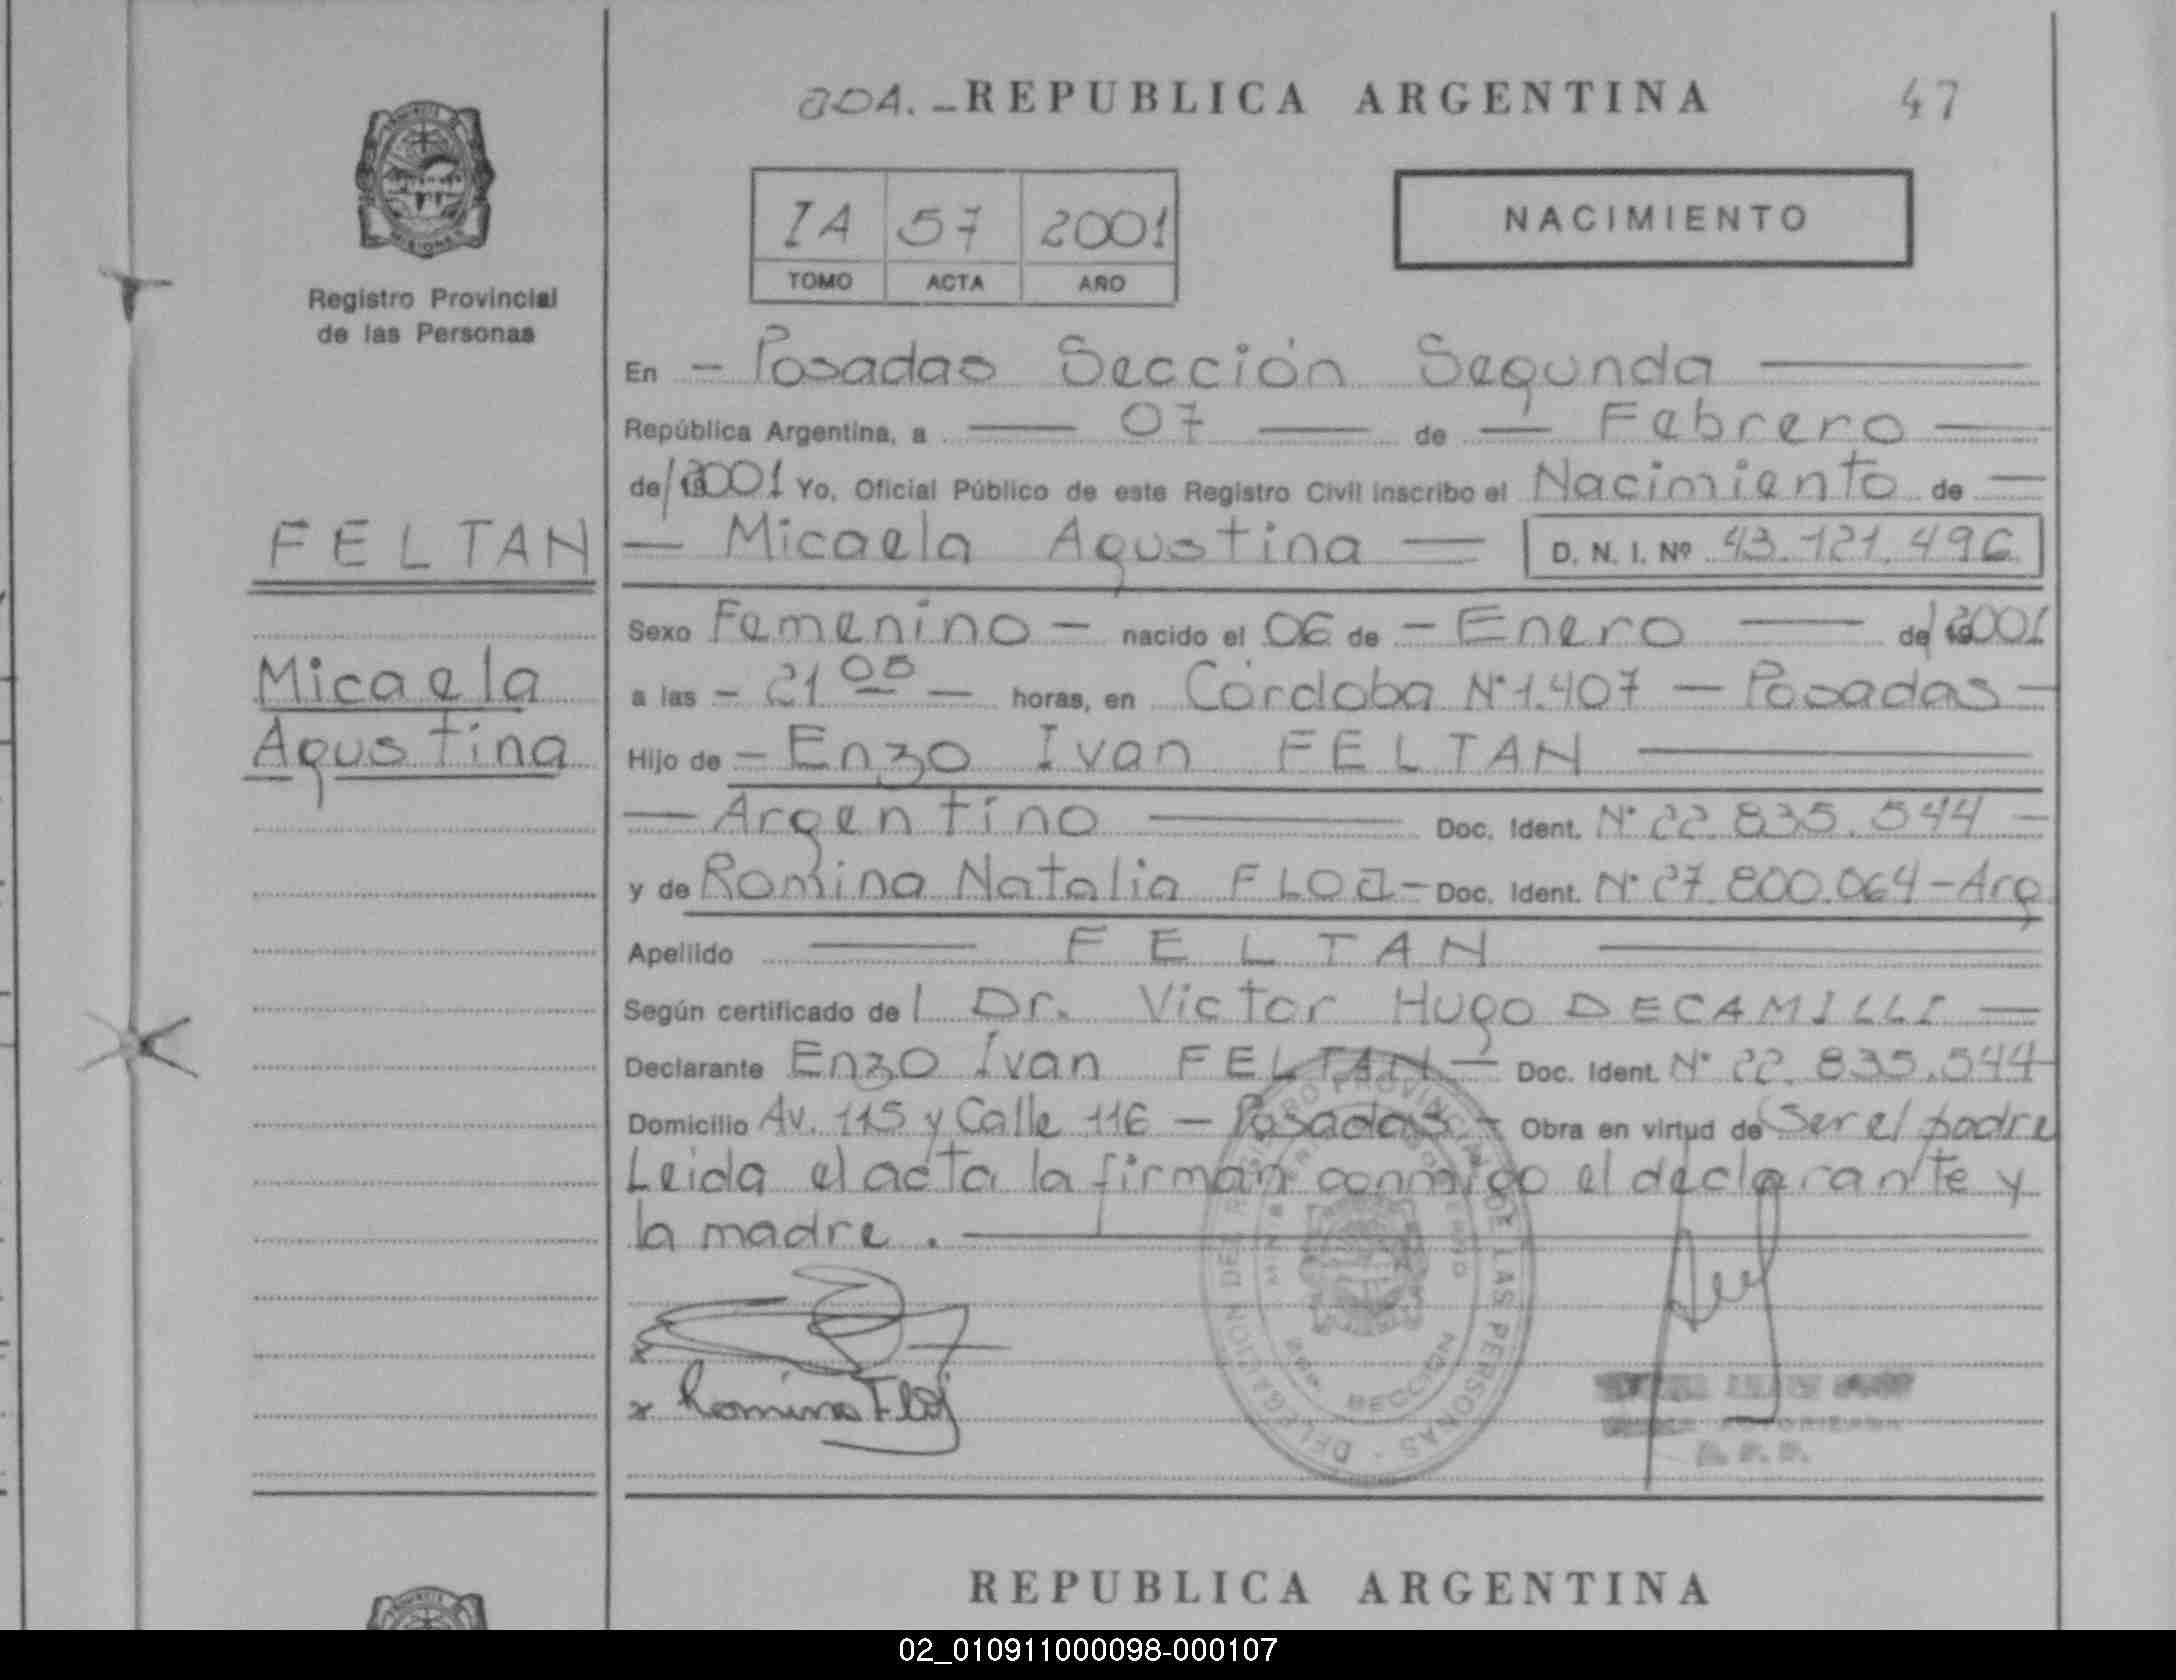 JOA. - REPUBLICA ARGENTINA 47
IA 57 2001
TOMO ACTA AÑO
NACIMIENTO
Registro Provincial
de las Personas
En - Posadas Sección Segunda
República Argentina, a 07 de Febrero
de/2001 Yo, Oficial Público de este Registro Civil inscribo el Nacimiento de
FELTAN
Micaela Agustina D. N. I. Nº 43.121.496
Sexo Femenino - nacido el 06 de - Enero de/2001
Micaela
a las - 21 05 - horas, en Córdoba Nº 1.407 - Posadas -
Agustina
Hijo de - Enzo Ivan FELTAN
Argentino Doc. Ident. Nº 22.835.544 -
y de Romina Natalia FLOJ - Doc. Ident. Nº 27.800.064 - Arg
Apellido FELTAN
Según certificado de l Dr. Victor Hugo DECAMILLI -
Declarante Enzo Ivan FELTAN - Doc. Ident. Nº 22.835.544
Domicilio Av. 115 y Calle 116 - Posadas - Obra en virtud de Ser el padre
Leida el acta la firman conmigo el declarante y
la madre.
x
x Romina Floj
DELEGACION DEL REGISTRO PROVINCIAL DE LAS PERSONAS
SECCION
REPUBLICA ARGENTINA
02_010911000098-000107